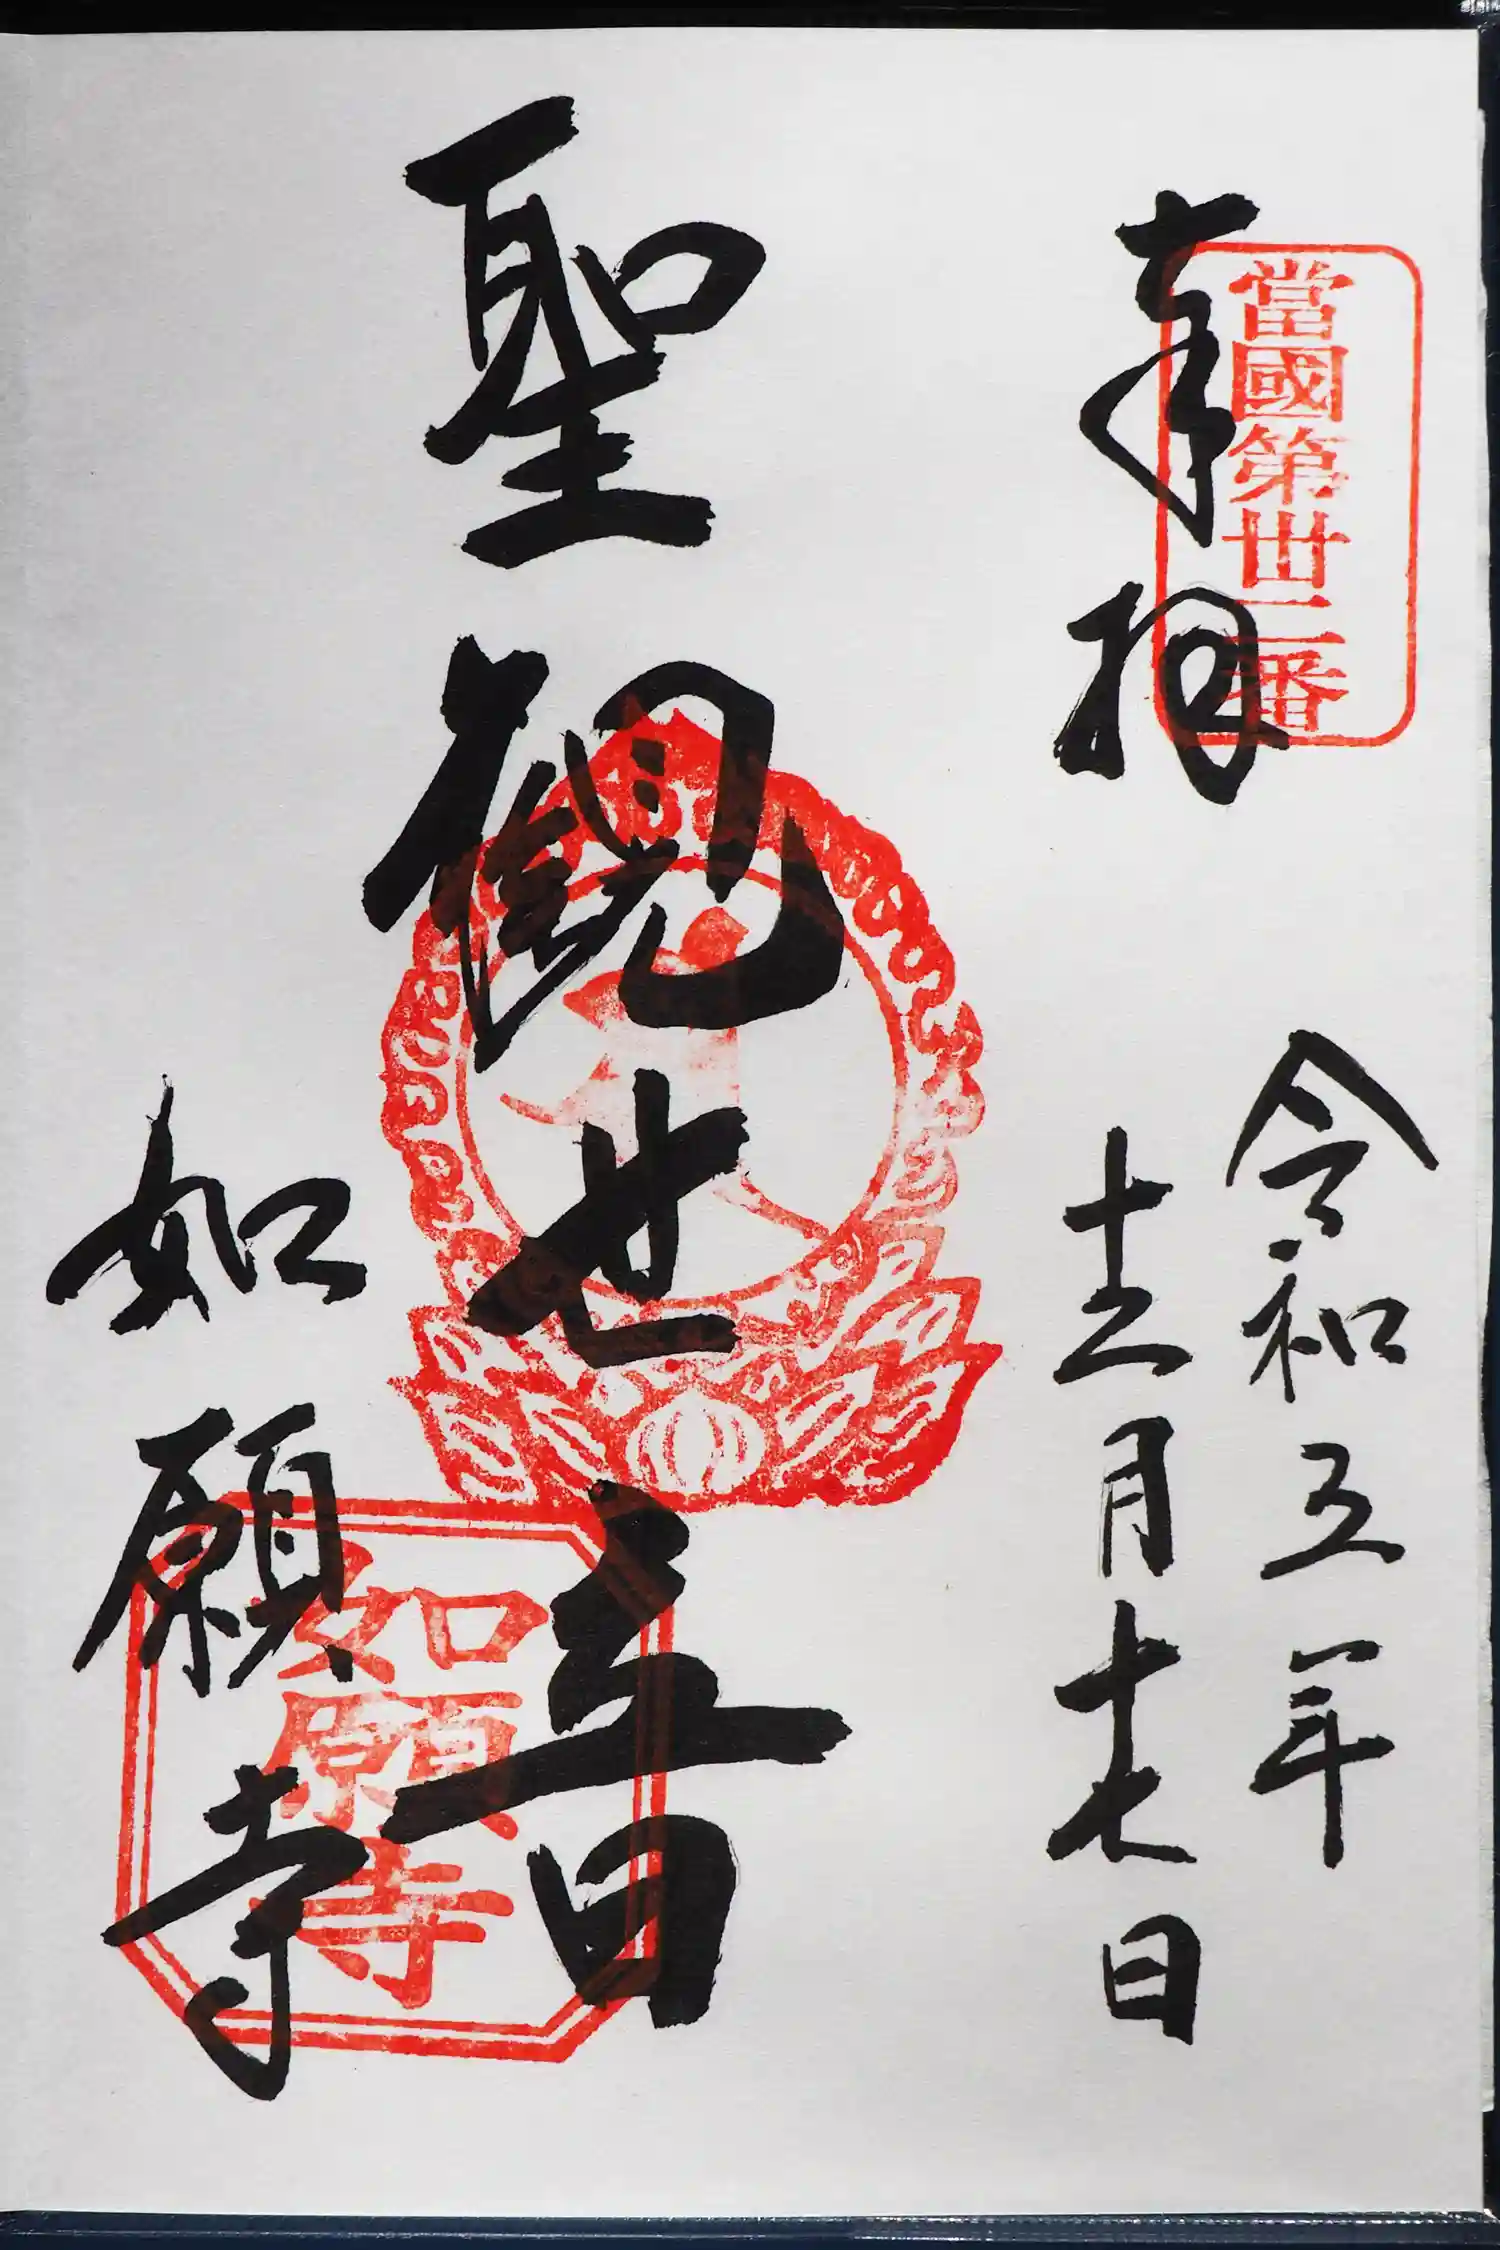 當國第卅二番
奉拝
令和五年
十二月十七日
聖観世音
如願寺
如願寺